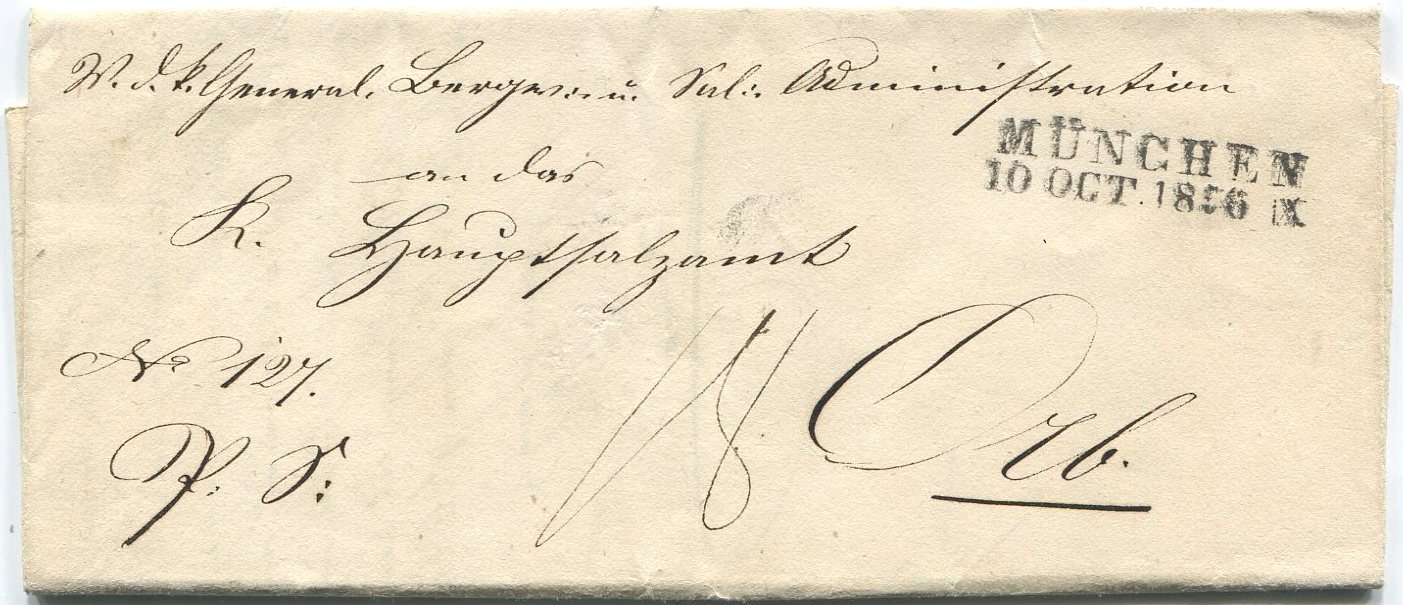 V. d. k. General. Bergw.: u. Sal.: Administration
MÜNCHEN
10 OCT. 1856 IX
an das
K. Hauptsalzamt
No 127.
18 Orb.
P. S: